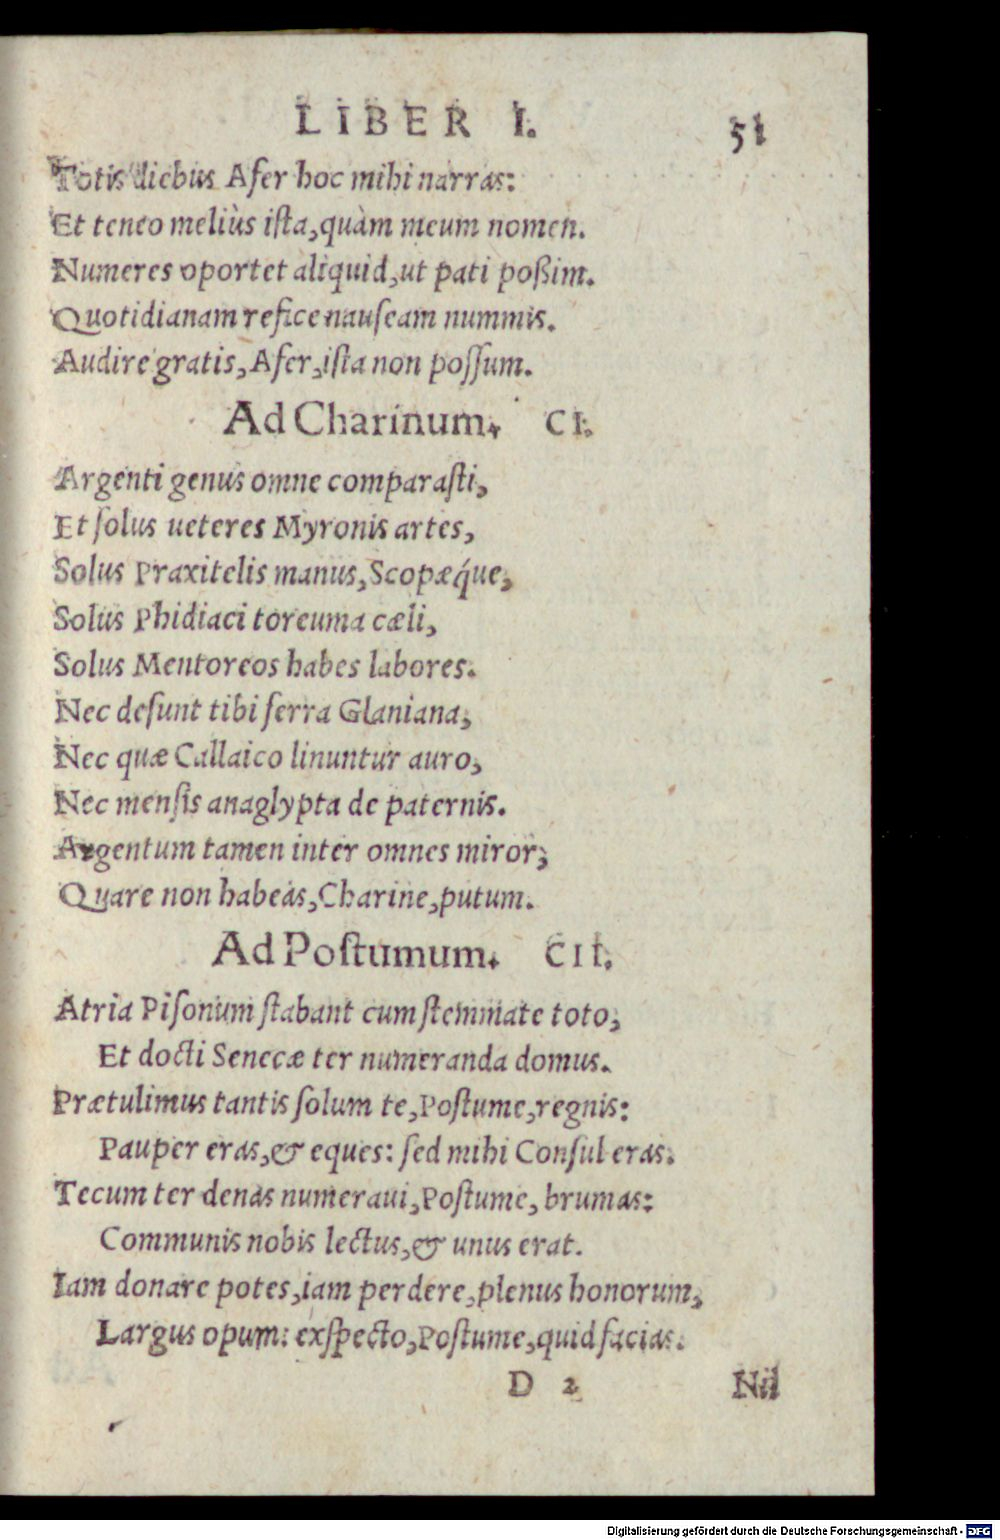 LIBER I. 51
Totis diebus Afer hoc mihi narras:
Et teneo meliùs iſta, quàm meum nomen.
Numeres oportet aliquid, ut pati poßim.
Quotidianam refice nauſeam nummis.
Audire gratis, Afer, iſta non poſſum.
Ad Charinum. CI.
Argenti genus omne comparaſti,
Et ſolus ueteres Myronis artes,
Solus Praxitelis manus, Scopæq́ue,
Solus Phidiaci toreuma cæli,
Solus Mentoreos habes labores.
Nec deſunt tibi ferra Glaniana,
Nec quæ Callaico linuntur auro,
Nec menſis anaglypta de paternis.
Argentum tamen inter omnes miror,
Quare non habeas, Charine, putum.
Ad Poſtumum. CII.
Atria Piſonum ſtabant cum ſtemmate toto,
Et docti Senecæ ter numeranda domus.
Prætulimus tantis ſolum te, Poſtume, regnis:
Pauper eras, & eques: ſed mihi Conſul eras.
Tecum ter denas numeraui, Poſtume, brumas:
Communis nobis lectus, & unus erat.
Iam donare potes, iam perdere, plenus honorum,
Largus opum: exſpecto, Poſtume, quid facias.
D 2 Nil
Digitalisierung gefördert durch die Deutsche Forschungsgemeinschaft - DFG